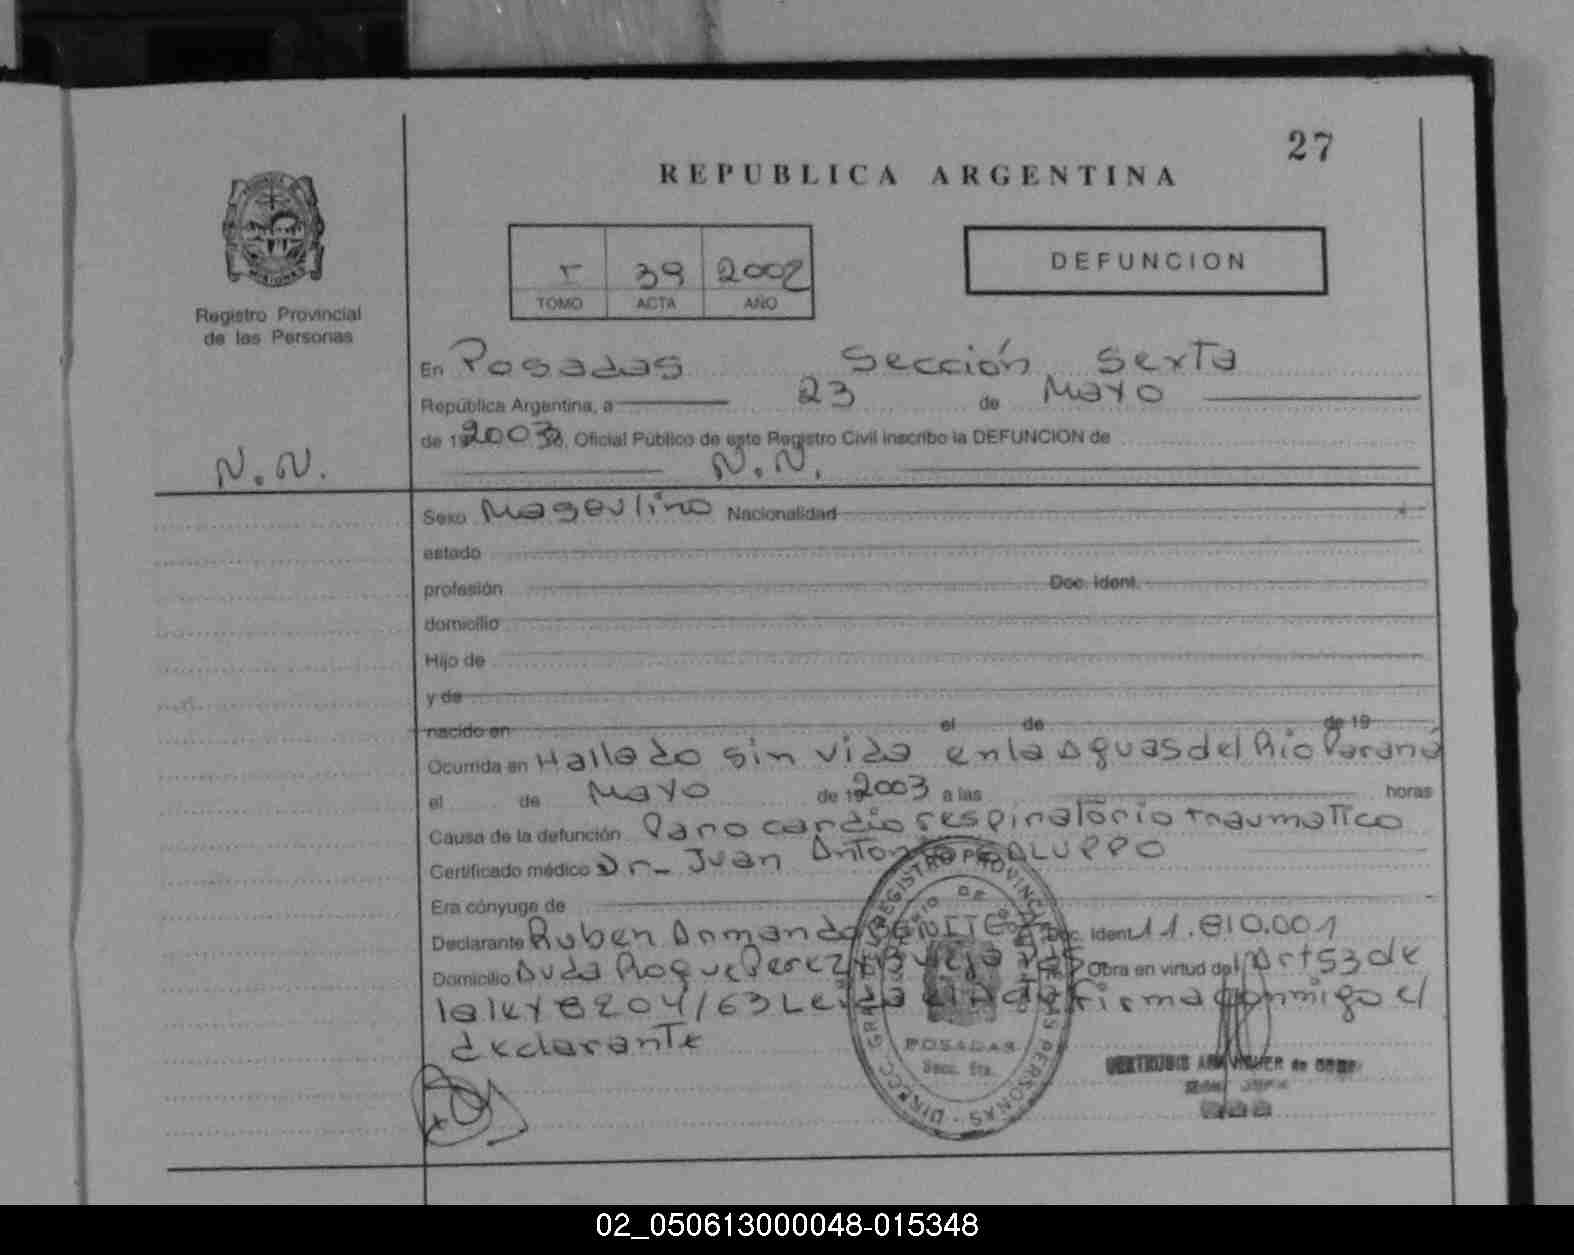 27
REPUBLICA ARGENTINA
I 39 2002
TOMO ACTA AÑO
DEFUNCION
Registro Provincial
de las Personas
En Posadas Sección Sexta
República Argentina, a 23 de Mayo
de 19 2003, Oficial Público de este Registro Civil inscribo la DEFUNCION de
N.N.
N.N.
Sexo Masculino Nacionalidad
estado
profesión Doc. Ident.
domicilio
Hijo de
y de
nacido en el de de 19
Ocurrida en Hallado sin vida en la Aguas del Rio Paraná
el de Mayo de 19 2003 a las horas
Causa de la defunción Paro cardio respiratorio traumatico
Certificado médico Dr. Juan Antonio GALUPPO
Era cónyuge de
Declarante Ruben Armando Doc. Ident. 11.810.001
Domicilio Avda Roque Perez Obra en virtud del Art 53 de
la ley 8204/63 Leida el Acta firma conmigo el
declarante
POSADAS
Secc. 6ta.
02_050613000048-015348